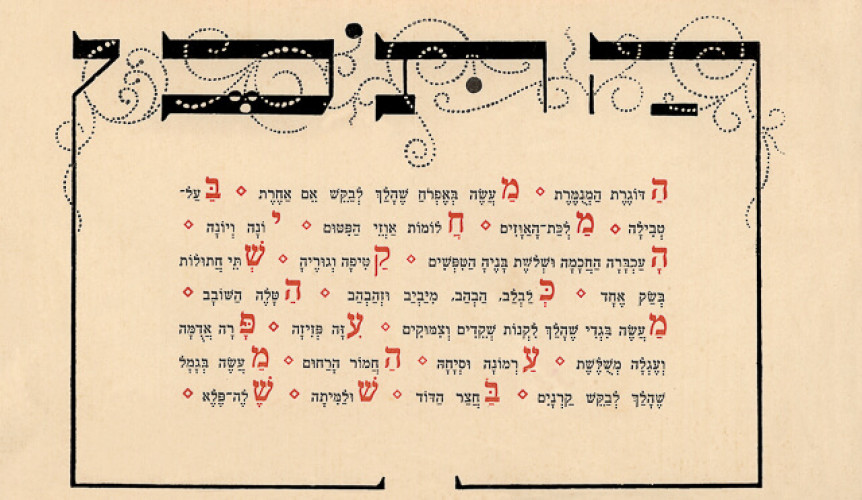 הַתֹּכֶן
הַדּוֹגֶרֶת הַמְנֻמֶּרֶת ◇ מַעֲשֶׂה בְּאֶפְרֹחַ שֶׁהָלַךְ לְבַקֵּשׁ אֵם אַחֶרֶת ◇ בַּעַל־
טְבִילָה ◇ מַלְכַּת־הָאֲוָזִים ◇ חֲלוֹמוֹת אַוְזֵי הַפִּטּוּם ◇ יוֹנָה וְיוֹנָה ◇
הָעַכְבָּרָה הַחֲכָמָה וּשְׁלֹשֶׁת בָּנֶיהָ הַטִּפְּשִׁים ◇ קַטִּיפָה וְגוּרֶיהָ ◇ שְׁתֵּי חֲתוּלוֹת
בְּשַׂק אֶחָד ◇ כְּלַבְלַב, הַבְהַב, מִיַבְיַב וּזְהַבְהַב ◇ הַטָּלֶה הַשּׁוֹבָב ◇
מַעֲשֶׂה בִּגְדִי שֶׁהָלַךְ לִקְנוֹת שְׁקֵדִים וְצִמּוּקִים ◇ עִזָּה פְּזִיזָה ◇ פָּרָה אֲדֻמָּה
וְעֶגְלָה מְשֻׁלֶּשֶׁת ◇ עַרְמוֹנָה וּסְיָחָהּ ◇ הַחֲמוֹר הָרַחוּם ◇ מַעֲשֶׂה בְּגָמָל
שֶׁהָלַךְ לְבַקֵּשׁ קַרְנָיִם ◇ בַּחֲצַר הַדּוֹד ◇ שׁוּלַמִּיתָה ◇ שֶׁלֶה־פֶּלֶא ◇